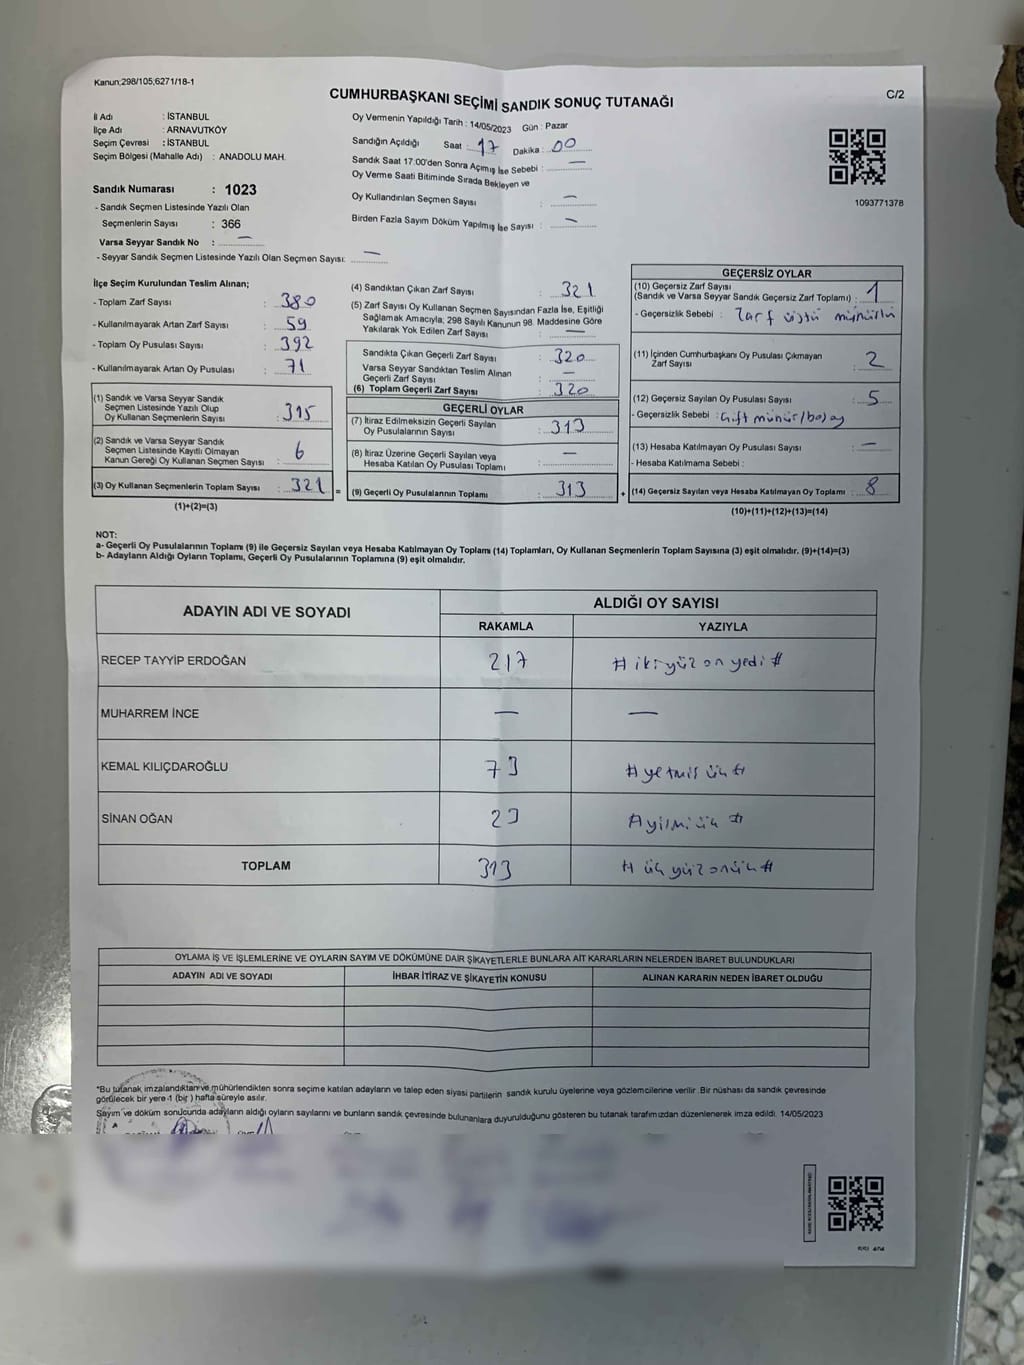 Kanun;298/105,6271/18-1
C/2
CUMHURBAŞKANI SEÇİMİ SANDIK SONUÇ TUTANAĞI
İl Adı : İSTANBUL
İlçe Adı : ARNAVUTKÖY
Seçim Çevresi : İSTANBUL
Seçim Bölgesi (Mahalle Adı) : ANADOLU MAH.
Sandık Numarası : 1023
- Sandık Seçmen Listesinde Yazılı Olan
Seçmenlerin Sayısı : 366
Varsa Seyyar Sandık No : —
- Seyyar Sandık Seçmen Listesinde Yazılı Olan Seçmen Sayısı: —
Oy Vermenin Yapıldığı Tarih : 14/05/2023 Gün : Pazar
Sandığın Açıldığı Saat : 17 Dakika : 00
Sandık Saat 17:00'den Sonra Açımış İse Sebebi : —
Oy Verme Saati Bitiminde Sırada Bekleyen ve
Oy Kullandırılan Seçmen Sayısı : —
Birden Fazla Sayım Döküm Yapılmış İse Sayısı : —
1093771378
İlçe Seçim Kurulundan Teslim Alınan;
- Toplam Zarf Sayısı : 380
- Kullanılmayarak Artan Zarf Sayısı : 59
- Toplam Oy Pusulası Sayısı : 392
- Kullanılmayarak Artan Oy Pusulası : 71
(1) Sandık ve Varsa Seyyar Sandık
Seçmen Listesinde Yazılı Olup
Oy Kullanan Seçmenlerin Sayısı : 315
(2) Sandık ve Varsa Seyyar Sandık
Seçmen Listesinde Kayıtlı Olmayan
Kanun Gereği Oy Kullanan Seçmen Sayısı : 6
(3) Oy Kullanan Seçmenlerin Toplam Sayısı : 321
(1)+(2)=(3)
(4) Sandıktan Çıkan Zarf Sayısı : 321
(5) Zarf Sayısı Oy Kullanan Seçmen Sayısından Fazla İse, Eşitliği
Sağlamak Amacıyla, 298 Sayılı Kanunun 98. Maddesine Göre
Yakılarak Yok Edilen Zarf Sayısı : —
Sandıkta Çıkan Geçerli Zarf Sayısı : 320
Varsa Seyyar Sandıktan Teslim Alınan
Geçerli Zarf Sayısı : —
(6) Toplam Geçerli Zarf Sayısı : 320
GEÇERLİ OYLAR
(7) İtiraz Edilmeksizin Geçerli Sayılan
Oy Pusulalarının Sayısı : 313
(8) İtiraz Üzerine Geçerli Sayılan veya
Hesaba Katılan Oy Pusulası Toplamı : —
= (9) Geçerli Oy Pusulalarının Toplamı : 313
GEÇERSİZ OYLAR
(10) Geçersiz Zarf Sayısı
(Sandık ve Varsa Seyyar Sandık Geçersiz Zarf Toplamı) : 1
- Geçersizlik Sebebi : Zarf üstü mühürlü
(11) İçinden Cumhurbaşkanı Oy Pusulası Çıkmayan
Zarf Sayısı : 2
(12) Geçersiz Sayılan Oy Pusulası Sayısı : 5
- Geçersizlik Sebebi : Çift mühür/boş oy
(13) Hesaba Katılmayan Oy Pusulası Sayısı : —
- Hesaba Katılmama Sebebi :
+ (14) Geçersiz Sayılan veya Hesaba Katılmayan Oy Toplamı : 8
(10)+(11)+(12)+(13)=(14)
NOT:
a- Geçerli Oy Pusulalarının Toplamı (9) ile Geçersiz Sayılan veya Hesaba Katılmayan Oy Toplamı (14) Toplamları, Oy Kullanan Seçmenlerin Toplam Sayısına (3) eşit olmalıdır. (9)+(14)=(3)
b- Adayların Aldığı Oyların Toplamı, Geçerli Oy Pusulalarının Toplamına (9) eşit olmalıdır.
ADAYIN ADI VE SOYADI
ALDIĞI OY SAYISI
RAKAMLA YAZIYLA
RECEP TAYYİP ERDOĞAN 217 # ikiyüz on yedi #
MUHARREM İNCE — —
KEMAL KILIÇDAROĞLU 73 # yetmiş üç #
SİNAN OĞAN 23 # yirmi üç #
TOPLAM 313 # üç yüz onüç #
OYLAMA İŞ VE İŞLEMLERİNE VE OYLARIN SAYIM VE DÖKÜMÜNE DAİR ŞİKAYETLERLE BUNLARA AİT KARARLARIN NELERDEN İBARET BULUNDUKLARI
ADAYIN ADI VE SOYADI İHBAR İTİRAZ VE ŞİKAYETİN KONUSU ALINAN KARARIN NEDEN İBARET OLDUĞU
*Bu tutanak imzalandıktan ve mühürlendikten sonra seçime katılan adayların ve talep eden siyasi partilerin sandık kurulu üyelerine veya gözlemcilerine verilir. Bir nüshası da sandık çevresinde
görülecek bir yere 1 (bir ) hafta süreyle asılır.
Sayım ve döküm sonucunda adayların aldığı oyların sayılarını ve bunların sandık çevresinde bulunanlara duyurulduğunu gösteren bu tutanak tarafımızdan düzenlenerek imza edildi. 14/05/2023